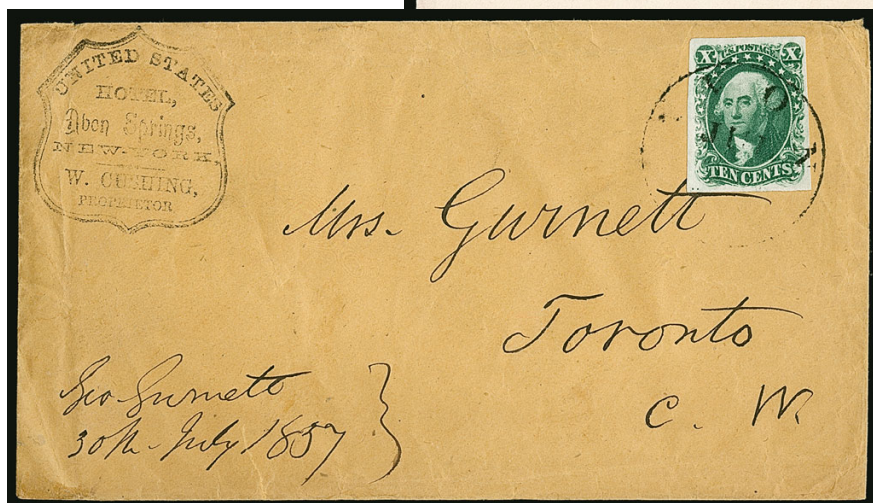 UNITED STATES
HOTEL,
Avon Springs,
NEW-YORK,
W. CUSHING,
PROPRIETOR
X U.S. POSTAGE X
TEN CENTS
Mrs. Gurnett
Toronto
C. W.
Geo Gurnett
30th July 1857